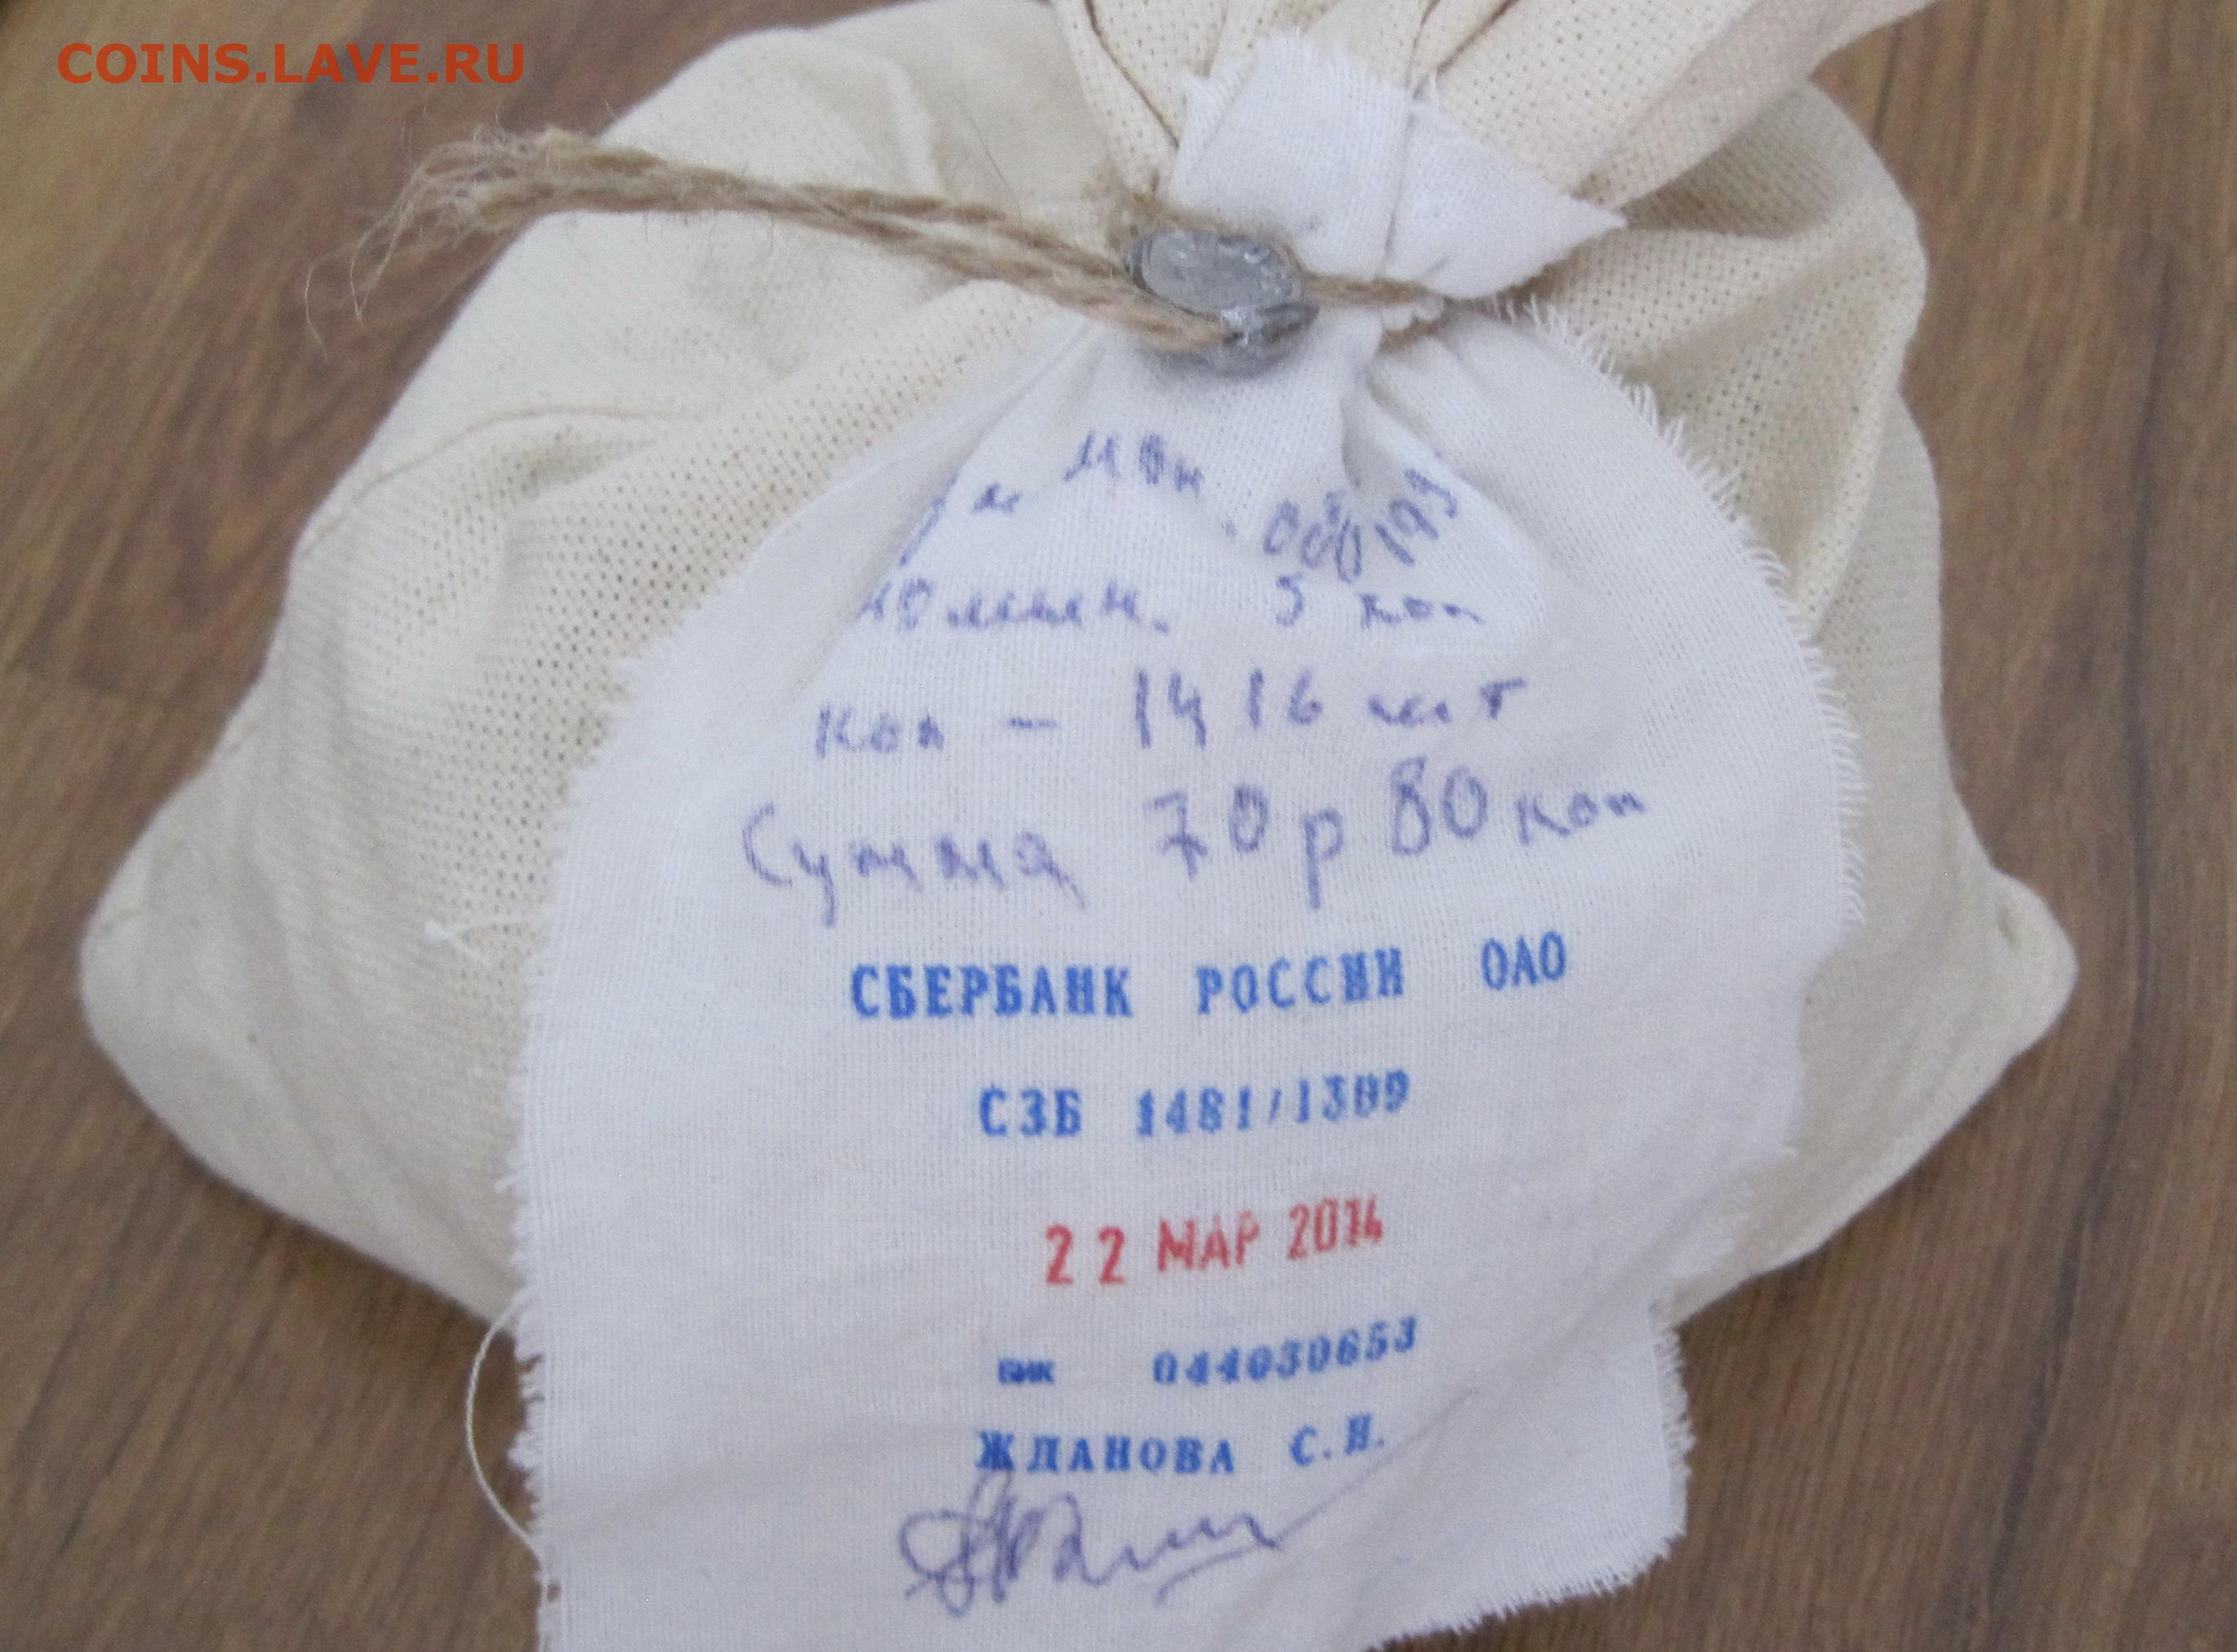 COINS.LAVE.RU
5 коп
кол - 1416 шт
Сумма 70 р 80 коп
СБЕРБАНК РОССИИ ОАО
СЗБ 1481/1309
22 МАР 2014
БИК 044030653
ЖДАНОВА С.Н.